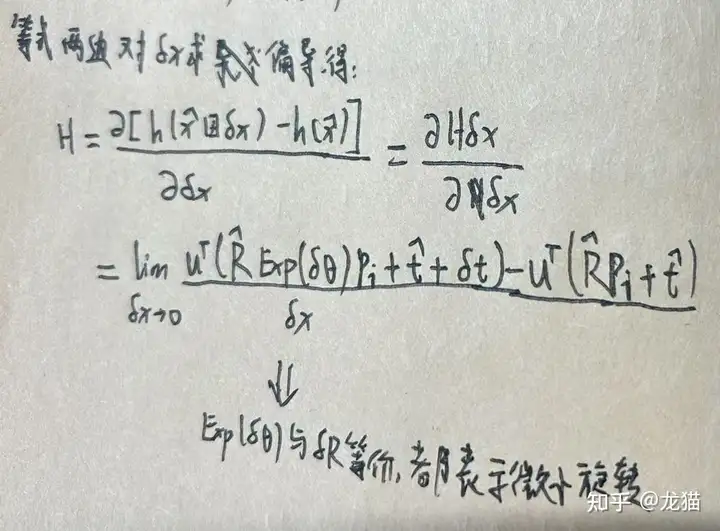 等式两边对δx求导或偏导得:
H = ∂[h(x̂⊞δx) - h(x̂)] / ∂δx = ∂Hδx / ∂δx
= lim δx→0 uᵀ(R̂ Exp(δθ)Pᵢ + t̂ + δt) - uᵀ(R̂Pᵢ + t̂) / δx
⇓
Exp(δθ)与δR等价,都表示微小旋转
知乎 @龙猫